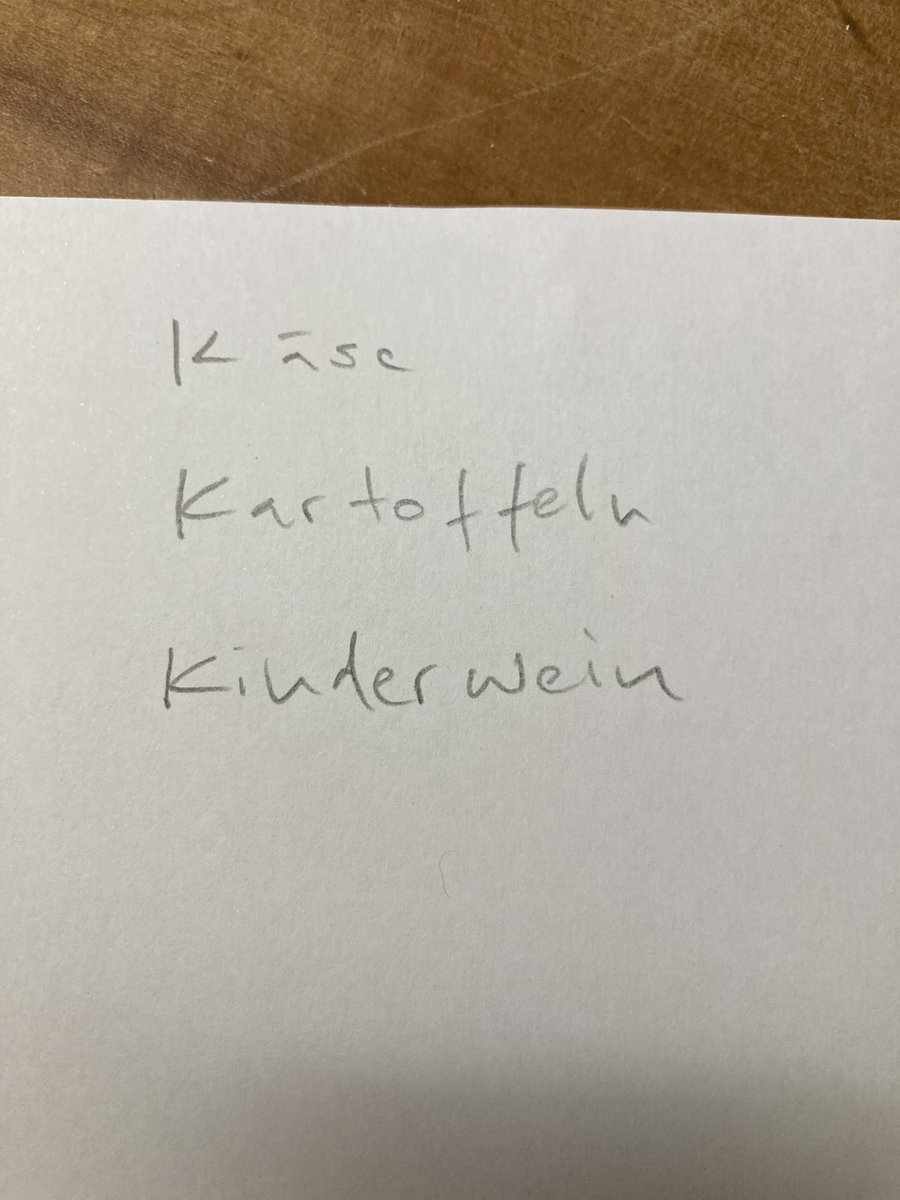 Käse
Kartoffeln
Kinderwein